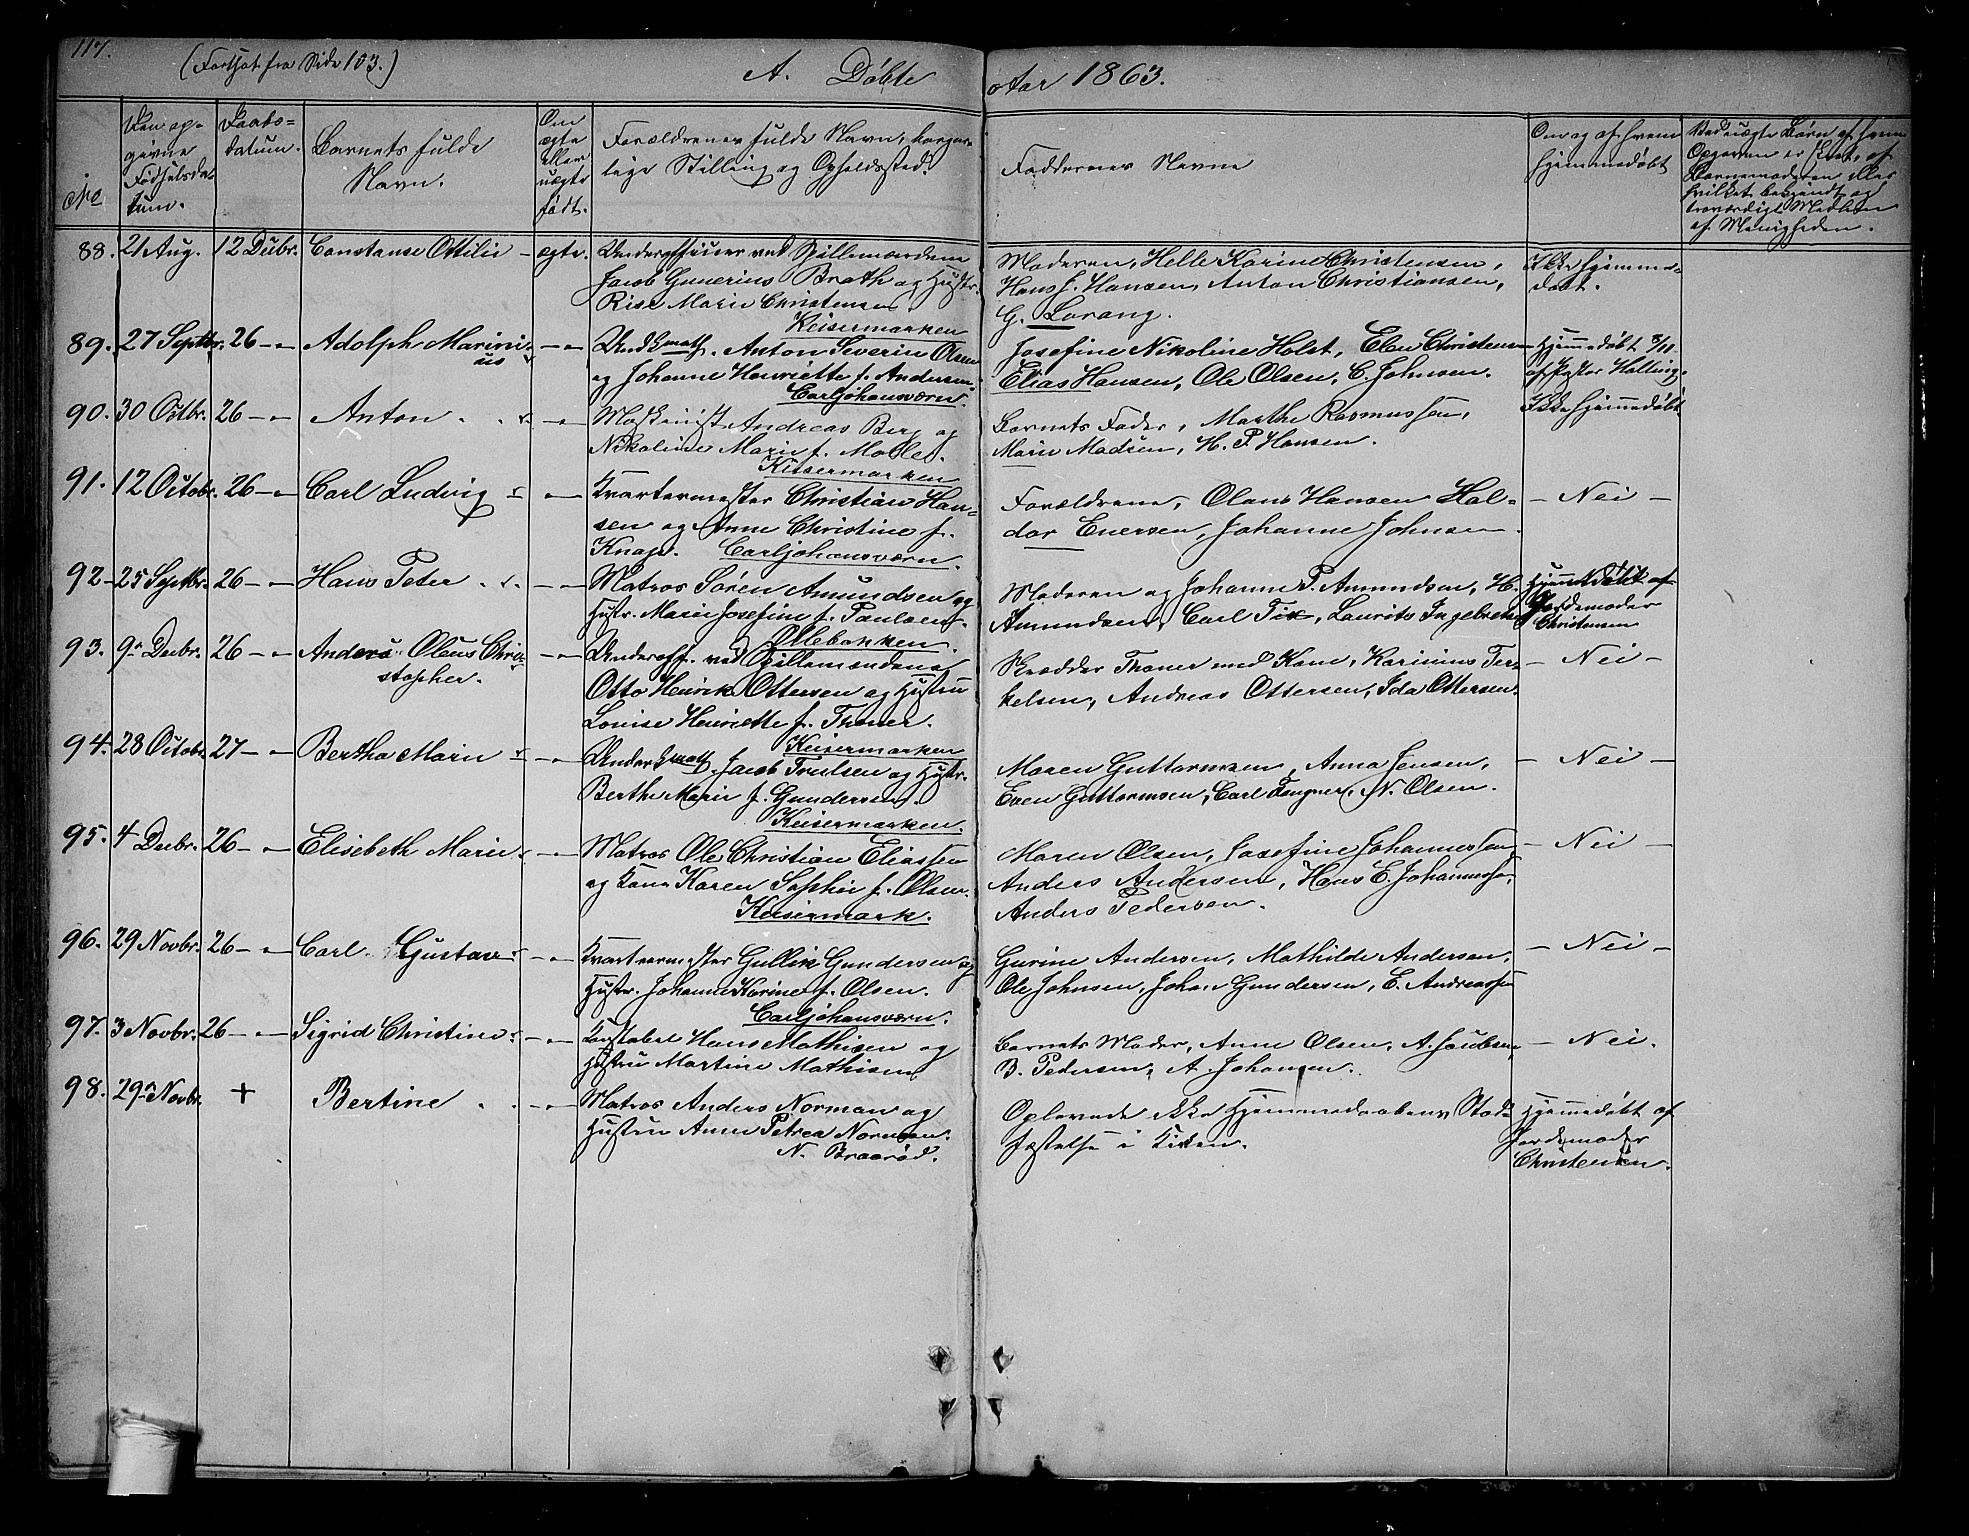 117.
(Fortsat fra Side 103.)
A. Døbte
Aar 1863.
No
Den op-
givne
Fødselsda-
tum.
Daabs-
datum.
Barnets fulde
Navn.
Om
ægte
eller
uægte
født.
Forældrenes fulde Navn, borger-
lige Stilling og Opholdssted.
Faddernes Navne
Om og af hvem
hjemmedøbt
Ved uægte Børn af hvem
Opgaven er skeet, af
Barnemoderen eller
hvilket bekjendt og
troværdigt Medlem
af Menigheden.
88. 21 Aug. 12 Decbr. Constanse Ottilie - ægte.
Underofficeer ved Spillemændene
Jacob Gunerius Brath og Hustr.
Rise Marie Christensen
Keisermarken
Moderen, Helle Karine Christensen,
Hans J. Hansen, Anton Christiansen,
G. Lorang.
Ikke hjemme-
døbt.
89. 27 Septbr. 26 - " Adolph Marini-
us
Anton Severin Olsen
og Johanne Henriette f. Andersen
Carljohansværn.
Josefine Nikoline Holst, Elen Christensen
Elias Hansen, Ole Olsen, C. Johnsen.
Hjemmedøbt
af Pastor Halling.
90. 30 Octbr. 26 - " Anton - " -
Maskinist Andreas Berg og
Nikoline Marie f. Molle.
Keisermarken
Barnets Fader, Marthe Rasmussen,
Marie Madsen, H. P. Hansen.
Ikke hjemmedøbt
91. 12 Octobr. 26 - " Carl Ludvig - " -
Kvartermester Christian Han-
sen og Anne Christine f.
Knap. Carljohansværn.
Forældrene, Olaus Hansen Hol-
dar Enersen, Johanne Johnsen.
- Nei -
92 - 25 Septbr. 26 - " Hans Peter - " -
Matros Søren Amundsen og
Hustr. Marie Josefine f. Paulsen.
Ollebakken.
Moderen og Johanne P. Amundsen, H.
Amundsen, Carl Fix, Laurits Ingebretsen
Hjemmedøbt af
Jordemoder
Christensen
93. 9 Decbr. 26 - " Anders Oleus Chri-
stopher.
Underoff. ved Spillemændene
Otto Henrik Ottersen og Hustru
Louise Henriette f. Thoner.
Keisermarken
Skrædder Thoner med Kone, Karinius Ter-
kelsen, Andreas Ottersen, Ida Ottersen.
- Nei -
94. 28 Octobr. 27 - " Bertha Marie - " -
Jacob Truelsen og Hustr.
Berthe Marie f. Gundersen.
Keisermarken.
Maren Guttormsen, Anna Jensen,
Even Guttormsen, Carl Fangner, N. Olsen.
- Nei -
95. 4 Decbr. 26 - " Elisebeth Marie - " -
Matros Ole Christian Eliassen
og Kone Karen Sophie f. Olsen.
Keisermark.
Maren Olsen, Josefine Johannessen
Anders Andersen, Hans E. Johannessen,
Anders Pedersen.
- Nei -
96. 29 Novbr. 26 - " Carl Gustav - " -
Kvartermester Gullik Gundersen og
Hustr. Johanne Karine f. Olsen.
Carljohansværn.
Gurine Andersen, Mathilde Andersen,
Ole Johnsen, Johan Gundersen, E. Andreassen
- Nei -
97. 3 Novbr. 26 - " Sigrid Christine - " -
Konstabel Hans Mathisen og
Hustru Martine Mathisen
Barnets Moder, Anne Olsen, A. Jacobsen,
B. Pedersen, A. Johansen.
- Nei.
98. 29 Novbr. + Bertine - " -
Matros Anders Norman og
Hustru Anne Petrea Norman.
N. Braarød.
Oplevede ikke Hjemmedaabens Stad-
fæstelse i Kirken.
Hjemmedøbt af
Jordemoder
Christensen.